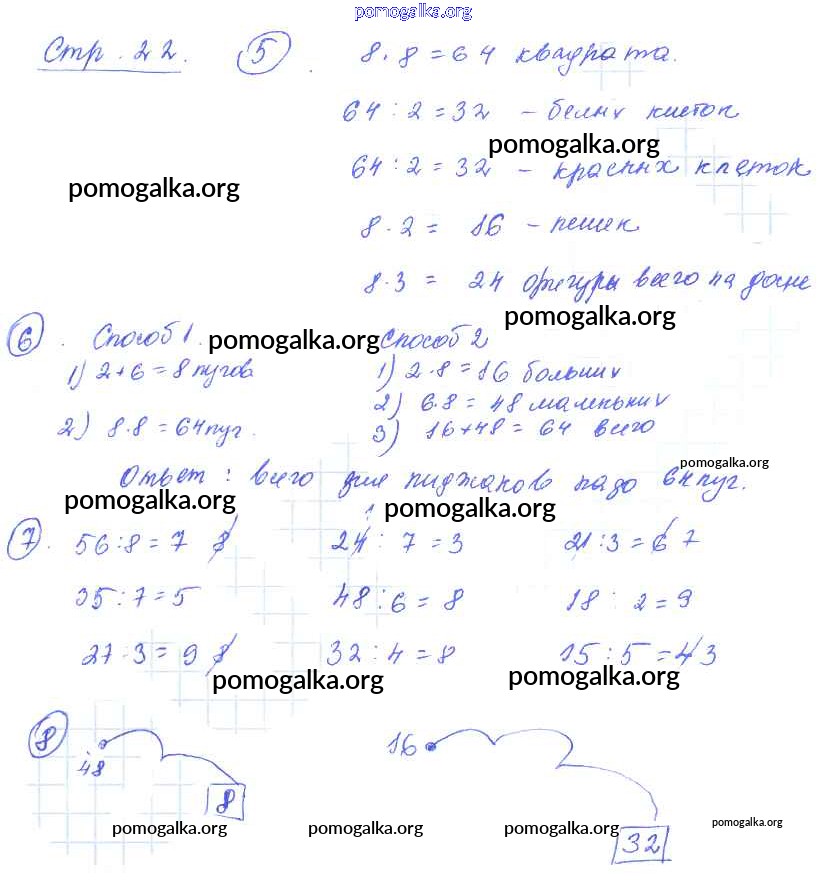 pomogalka.org
Стр. 22. 5. 8 · 8 = 64 квадрата.
64 : 2 = 32 – белых клеток
pomogalka.org
64 : 2 = 32 – красных клеток
pomogalka.org
8 · 2 = 16 – пешек
8 · 3 = 24 фигуры всего на доске
pomogalka.org
6. Способ 1. pomogalka.org Способ 2
1) 2 + 6 = 8 пугов 1) 2 · 8 = 16 больших
2) 6 · 8 = 48 маленьких
2) 8 · 8 = 64 пуг. 3) 16 + 48 = 64 всего
pomogalka.org
Ответ : всего для пиджаков надо 64 пуг.
pomogalka.org pomogalka.org
7. 56 : 8 = 7 8 21 : 7 = 3 21 : 3 = 6 7
35 : 7 = 5 48 : 6 = 8 18 : 2 = 9
27 : 3 = 9 8 32 : 4 = 8 15 : 5 = 4 3
pomogalka.org pomogalka.org
8 48 16
8
pomogalka.org pomogalka.org pomogalka.org pomogalka.org
32